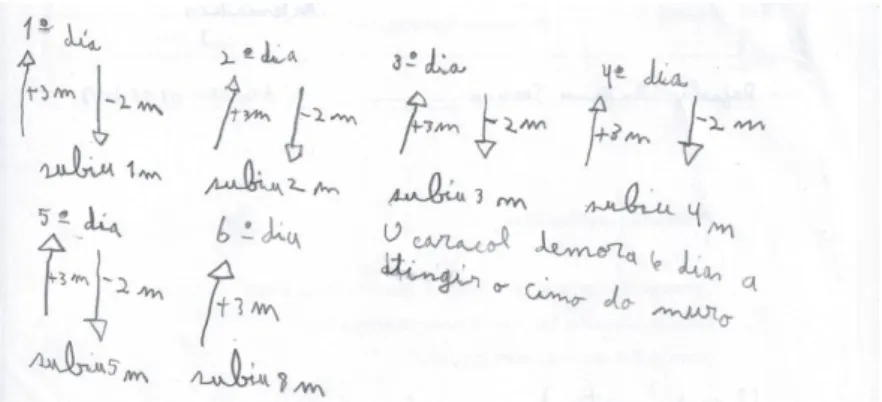 1º dia
+3m -2 m
subiu 1m
2º dia
+3m -2 m
subiu 2 m
3º dia
+3m -2m
subiu 3 m
4º dia
+3m -2 m
subiu 4 m
5º dia
+3m -2 m
subiu 5 m
6º dia
+3 m
subiu 8 m
O caracol demora 6 dias a
atingir o cimo do muro